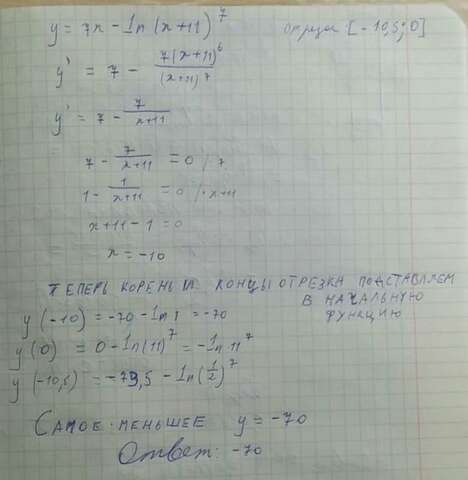 y = 7x - ln(x+11)^7 отрезок [-10,5;0]
y' = 7 - 7(x+11)^6/(x+11)^7
y' = 7 - 7/(x+11)
7 - 7/(x+11) = 0 /:7
1 - 1/(x+11) = 0 /·x+11
x+11-1=0
x = -10
ТЕПЕРЬ КОРЕНЬ И КОНЦЫ ОТРЕЗКА ПОДСТАВЛЯЕМ
В НАЧАЛЬНУЮ
ФУНКЦИЮ
y(-10) = -70 - ln1 = -70
y(0) = 0 - ln(11)^7 = -ln11^7
y(-10,5) = -73,5 - ln(1/2)^7
САМОЕ МЕНЬШЕЕ y = -70
Ответ: -70